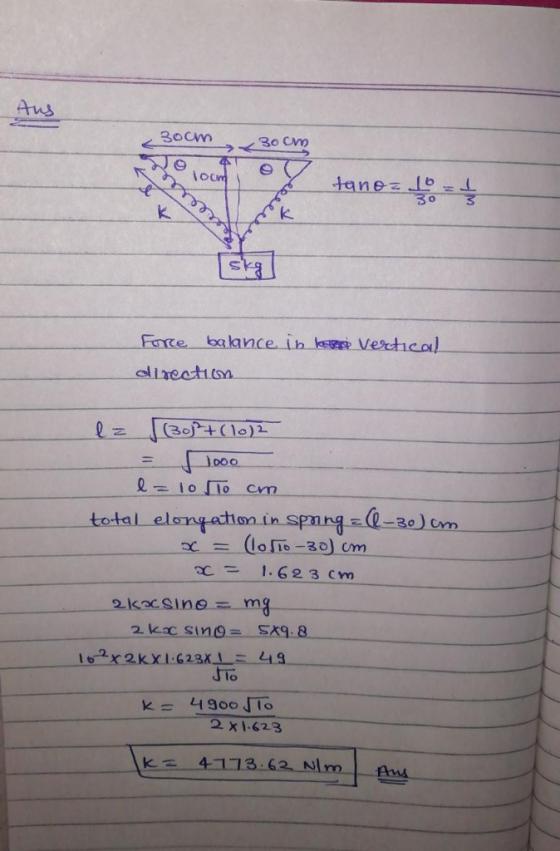 Ans
30cm 30cm
θ 10cm θ
l
K K
tanθ = 10/30 = 1/3
5kg
Force balance in vertical
direction
l = √(30)²+(10)²
= √1000
l = 10√10 cm
total elongation in spring = (l-30) cm
x = (10√10-30) cm
x = 1.623 cm
2kx sinθ = mg
2kx sinθ = 5×9.8
10⁻²×2k×1.623×1/√10 = 49
K = 4900√10/2×1.623
K = 4773.62 N/m Ans